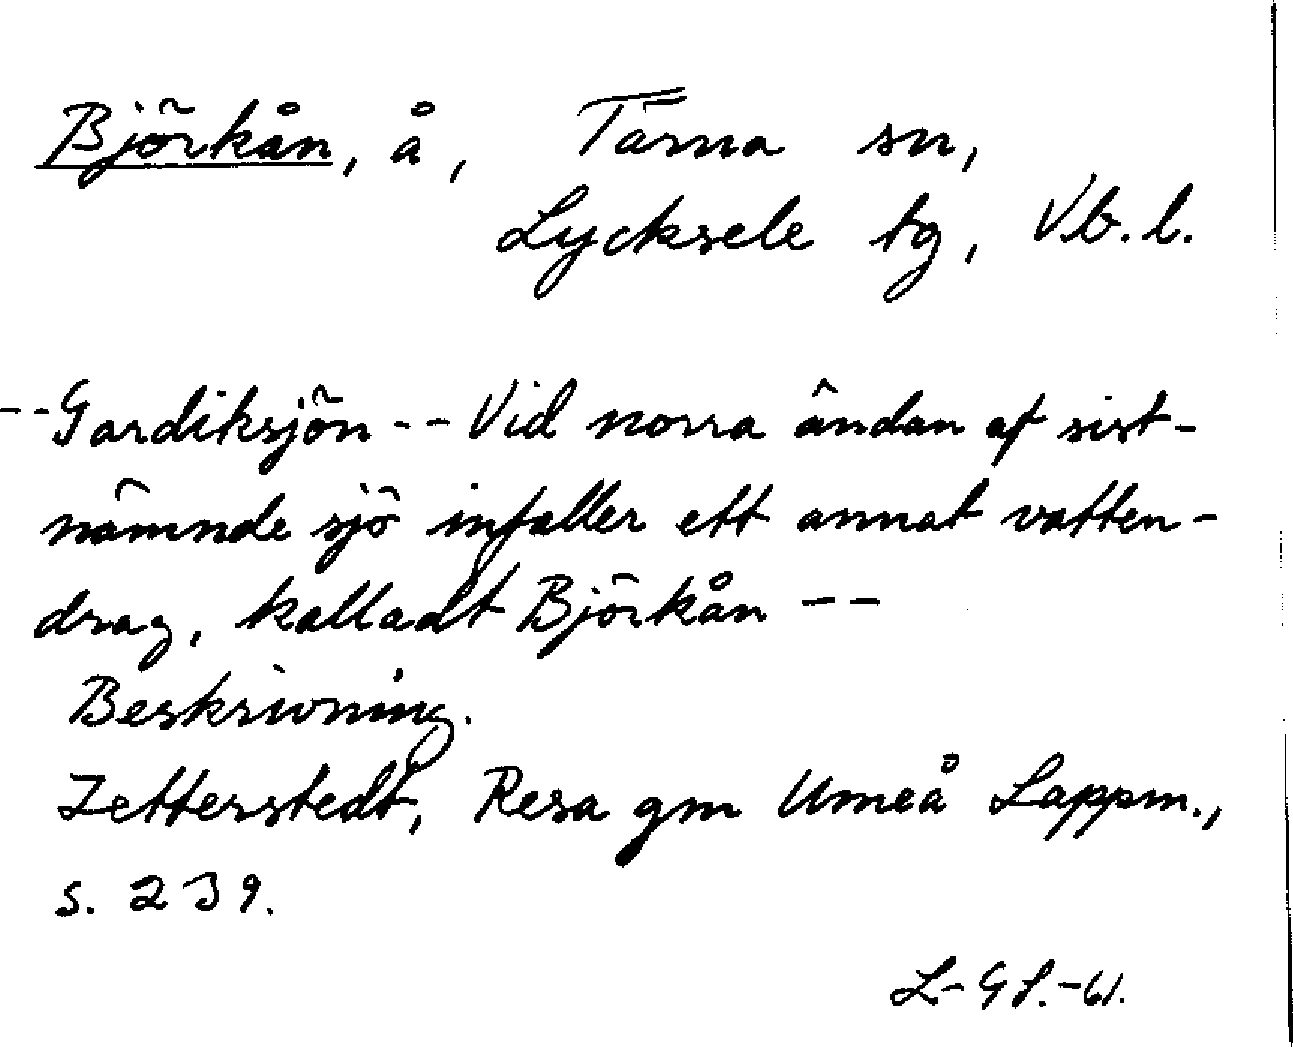 Björkån, å, Tärna sn,
Lycksele tg, Vb. l.
-- Gardiksjön -- Vid norra ändan af sist-
nämnde sjö infaller ett annat vatten-
drag, kalladt Björkån --
Beskrivning.
Zetterstedt, Resa gm Umeå Lappm.,
s. 239.
L-G L.-61.